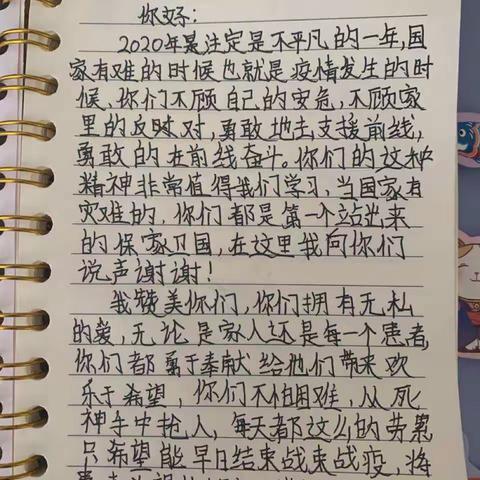 你好：
2020年是注定是不平凡的一年,国
家有难的时候也就是疫情发生的时
候、你们不顾自己的安危,不顾家
里的反对,勇敢地去支援前线,
勇敢的在前线奋斗。你们的这种
精神非常值得我们学习、当国家有
灾难的,你们都是第一个站出来
的保家卫国,在这里我向你们
说声谢谢！
我赞美你们,你们拥有无私
的爱,无论是家人还是每一个患者,
你们都勇于奉献给他们带来欢
乐于希望,你们不怕困难,从死
神手中抢人,每天都这么的劳累
只希望能早日结束战束战疫,将